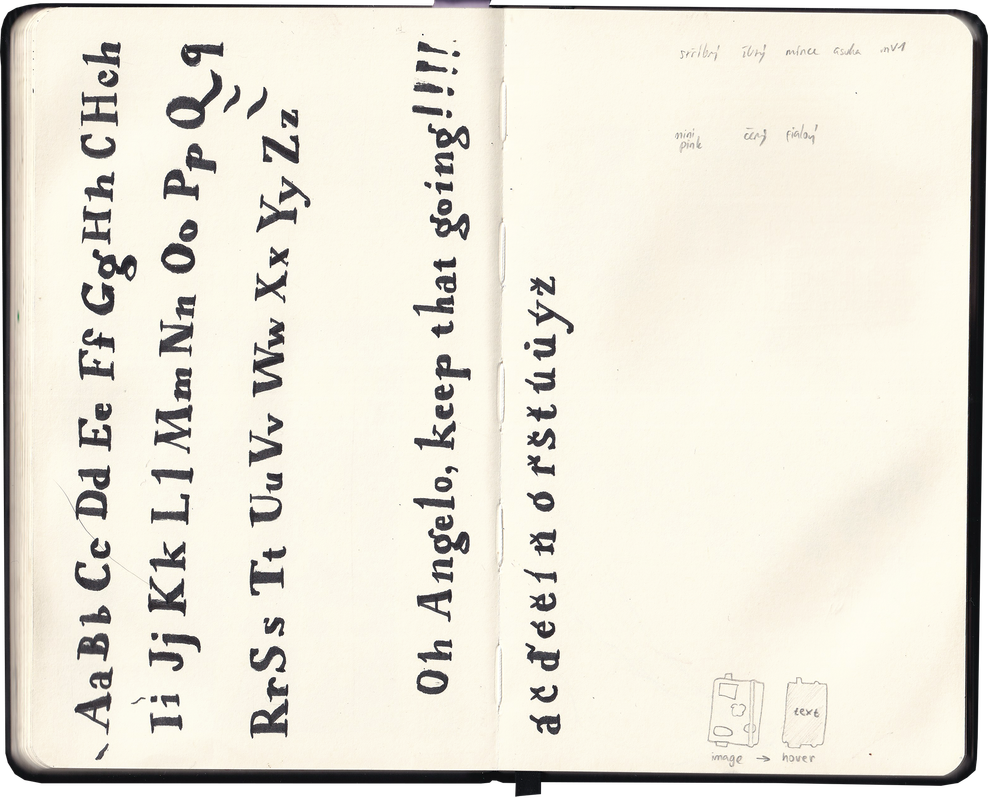 Aa Bb Cc Dd Ee Ff Gg Hh CHch
Ii Jj Kk Ll Mm Nn Oo Pp Qq
Rr Ss Tt Uu Vv Ww Xx Yy Zz
Oh Angelo, keep that going!!!!
á č ď é ě í ň ó ř š ť ú ů ý ž
stříbrný žlutý mince
mini
pink
černý fialový
text
image → hover